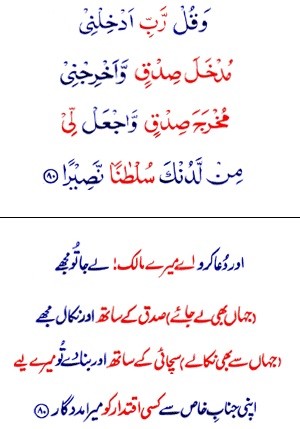 وَقُلْ رَّبِّ اَدْخِلْنِیْ
مُدْخَلَ صِدْقٍ وَّاَخْرِجْنِیْ
مُخْرَجَ صِدْقٍ وَّاجْعَلْ لِّیْ
مِنْ لَّدُنْكَ سُلْطٰنًا نَّصِیْرًا ﴿۸۰﴾
اور دُعا کرو اے میرے مالک! لے جا تُو مجھے
(جہاں بھی لے جائے) صدق کے ساتھ اور نکال مجھے
(جہاں سے بھی نکالے) سچائی کے ساتھ اور بنا دے تُو میرے لیے
اپنی جنابِ خاص سے کسی اقتدار کو میرا مددگار ﴿۸۰﴾